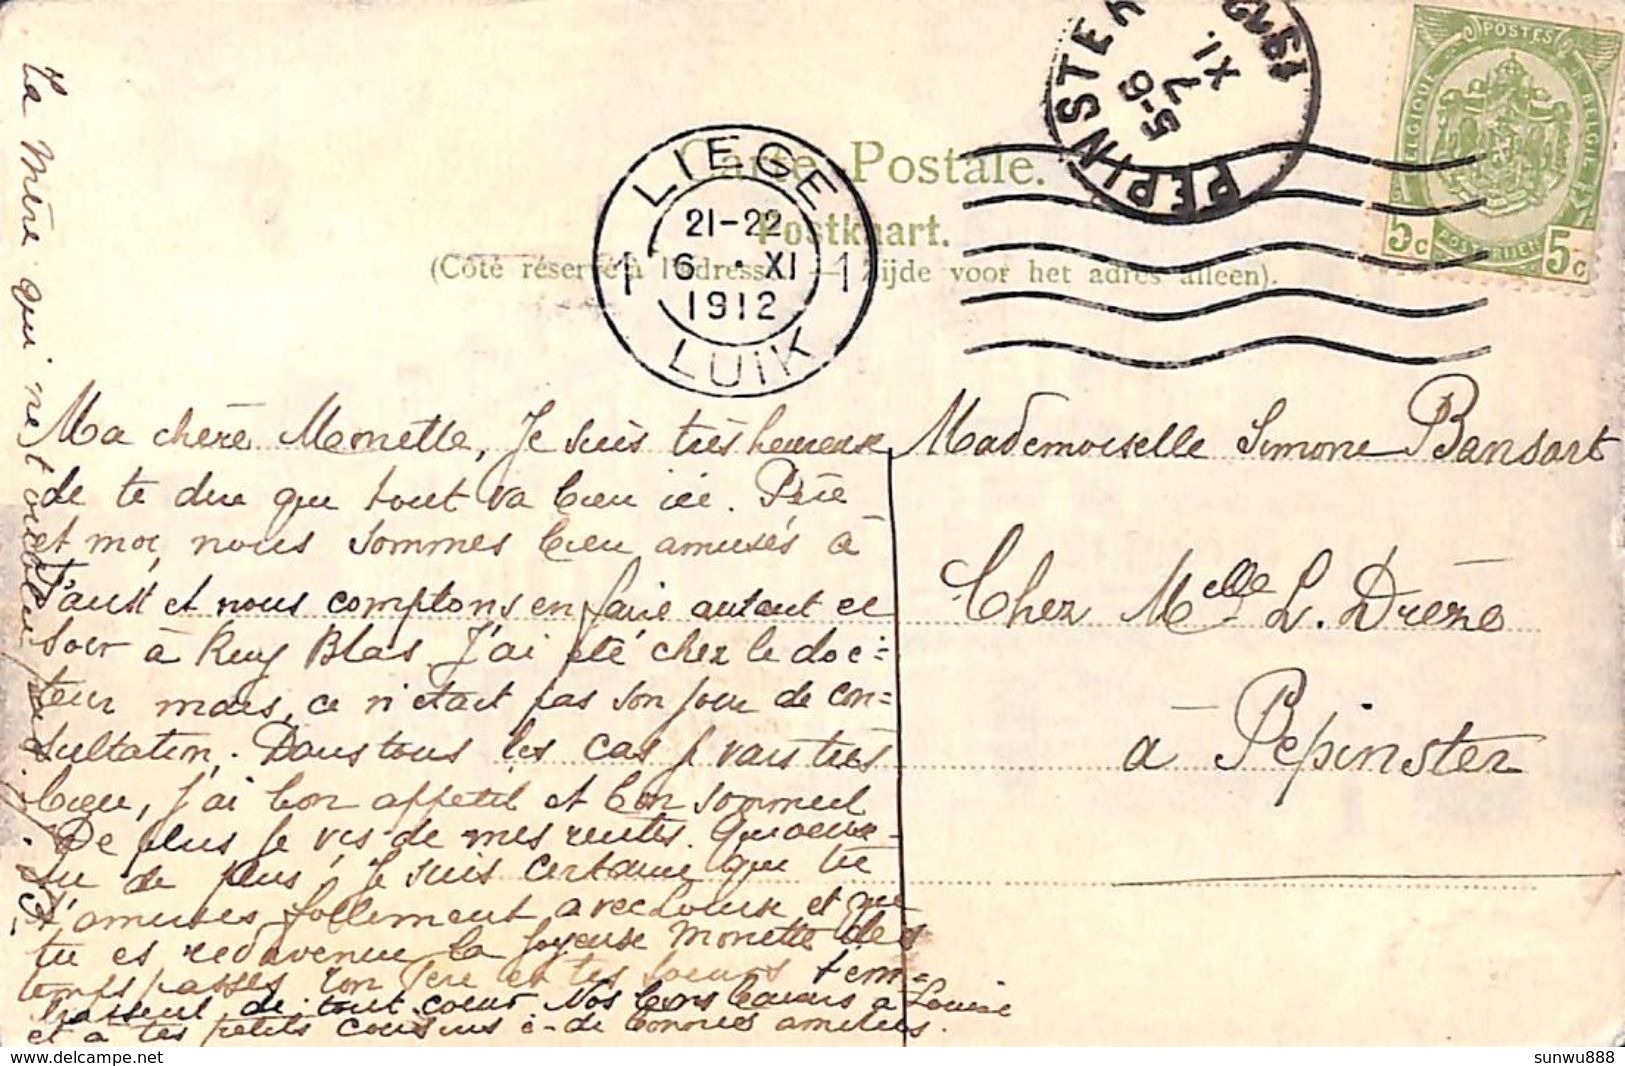 PEPINSTER
5-6
7
XI
1912
POSTES
BELGIQUE
BELGIE
5c
POSTERIJEN
5c
LIEGE
1 21-22 1
6 · XI
1912
LUIK
Carte Postale.
Postkaart.
(Côté réservé à l'adresse. — Zijde voor het adres alleen).
Ma chère Monette, Je suis très heureuse
de te dire que tout va bien ici. Père
et moi, nous sommes bien amusés à
Faust et nous comptons en faire autant ce
soir à Ruy Blas. J'ai été chez le doc=
teur mais, ce n'était pas son jour de con=
sultation. Dans tous les cas je vais très
bien, j'ai bon appétit et bon sommeil
De plus je vis de mes rentes. Qu'aurais-
tu de plus! Je suis certaine que tu
t'amuses follement avec Louise et que
tu es redevenue la joyeuse Monette des
temps passés Ton Père et tes soeurs t'em=
brassent de tout coeur Nos bons baisers à Louise
et à tes petits cousins & de bonnes amitiés.
La Mère qui ne t'oublie pas.
Mademoiselle Simone Bansart
Chez Melle L. Drèze
à Pepinster
sunwu888